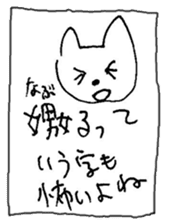 なぶ
嫐るって
いう字も
怖いよね